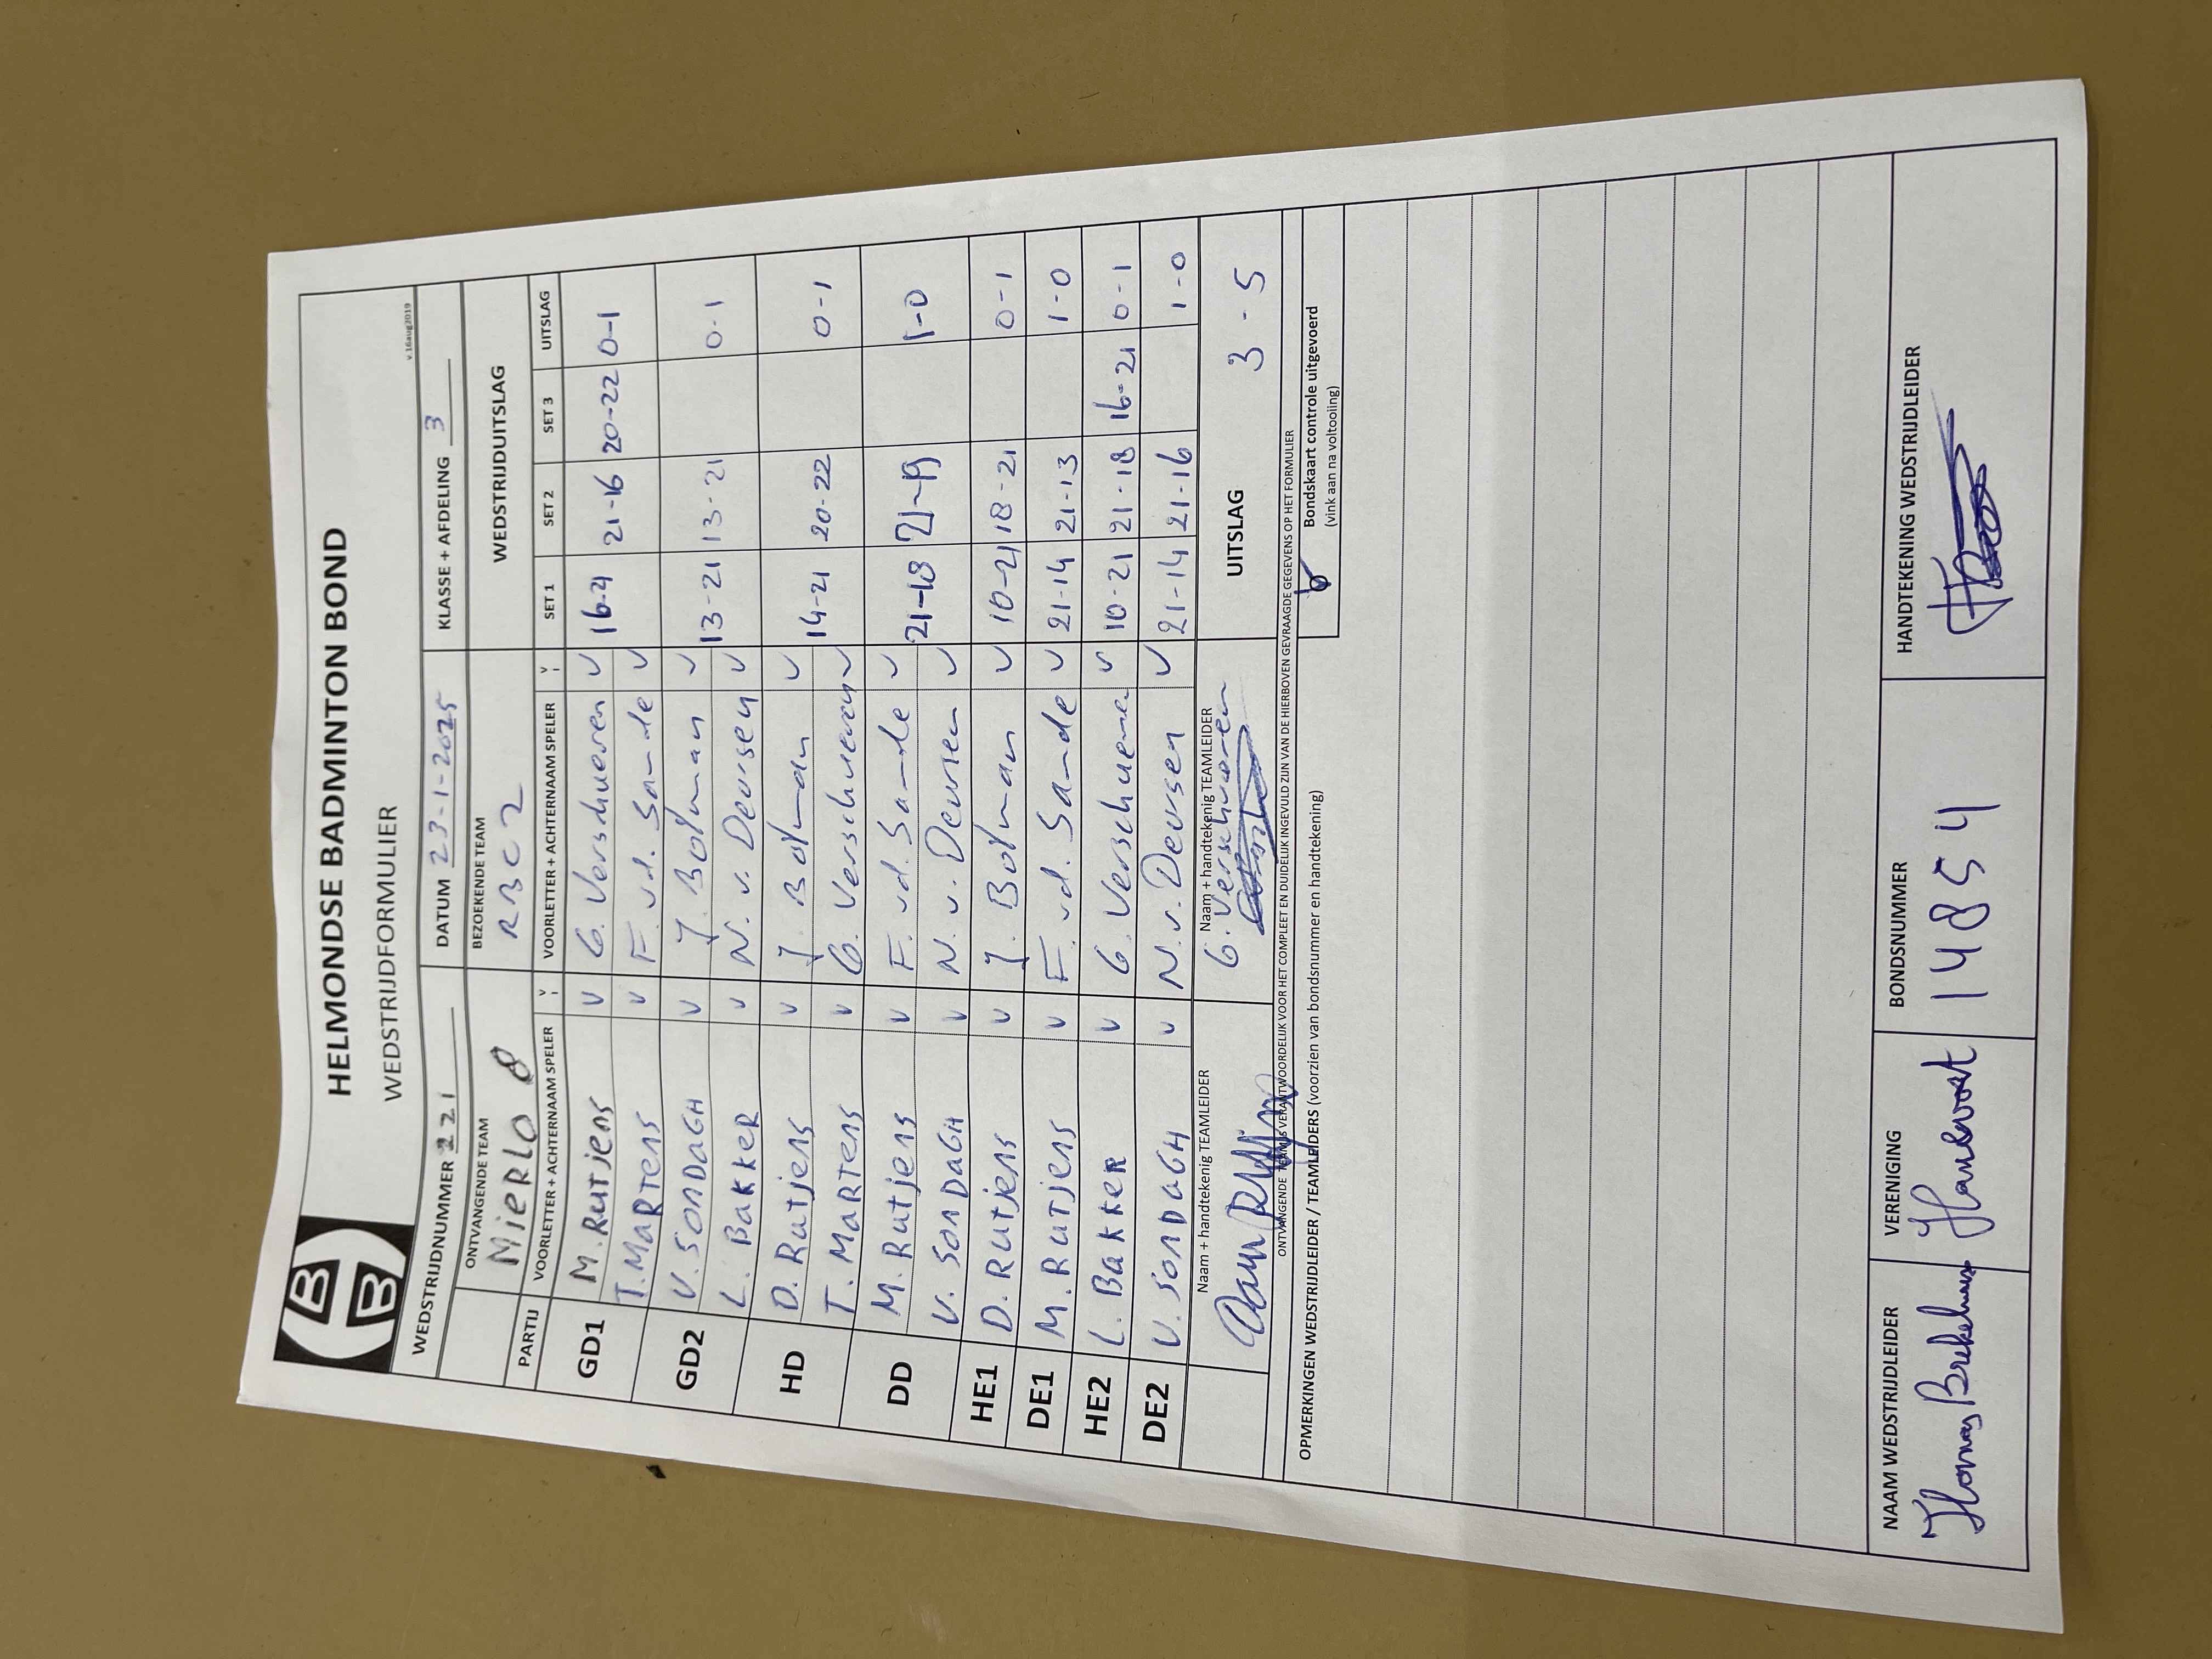 HELMONDSE BADMINTON BOND
WEDSTRIJDFORMULIER
v.16aug2019
WEDSTRIJDNUMMER 221 DATUM 23-1-2025 KLASSE + AFDELING 3
ONTVANGENDE TEAM BEZOEKENDE TEAM WEDSTRIJDUITSLAG
Mierlo 8 RBC 2
PARTIJ VOORLETTER + ACHTERNAAM SPELER V VOORLETTER + ACHTERNAAM SPELER V SET 1 SET 2 SET 3 UITSLAG
GD1 M. Rutjens v G. Verschueren v 16-21 21-16 20-22 0-1
T. Martens v F. vd. Sande v
GD2 V. Sondagh v J. Bolman v 13-21 13-21 0-1
L. Bakker v N. v. Deursen v
HD D. Rutjens v J. Bolman v 14-21 20-22 0-1
T. Martens v G. Verschueren v
DD M. Rutjens v F. vd. Sande v 21-18 21-19 1-0
V. Sondagh v N. v. Deursen v
HE1 D. Rutjens v J. Bolman v 10-21 18-21 0-1
DE1 M. Rutjens v F. vd. Sande v 21-14 21-13 1-0
HE2 L. Bakker v G. Verschueren v 10-21 21-18 16-21 0-1
DE2 V. Sondagh v N. v. Deursen v 21-14 21-16 1-0
Naam + handtekenig TEAMLEIDER Naam + handtekenig TEAMLEIDER UITSLAG 3 - 5
G. Verschueren
ONTVANGENDE TEAM IS VERANTWOORDELIJK VOOR HET COMPLEET EN DUIDELIJK INGEVULD ZIJN VAN DE HIERBOVEN GEVRAAGDE GEGEVENS OP HET FORMULIER
OPMERKINGEN WEDSTRIJDLEIDER / TEAMLEIDERS (voorzien van bondsnummer en handtekening)
Bondskaart controle uitgevoerd
(vink aan na voltooiing)
NAAM WEDSTRIJDLEIDER VERENIGING BONDSNUMMER HANDTEKENING WEDSTRIJDLEIDER
Thomas 14854